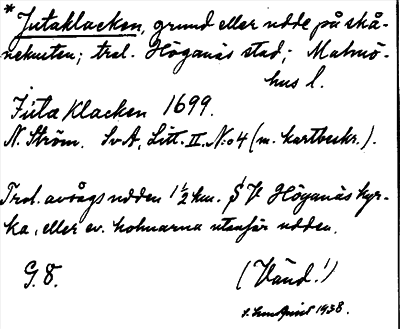 * Jutaklacken, grund eller udde på skå-
nekusten; trol. Höganäs stad; Malmö-
hus l.
Juta Klacken 1699.
N. Ström. SvA, Litt. II. N:o 4 (m. kartbeskr.).
Trol. avsågs udden 1 1/2 km. SV Höganäs kyr-
ka, eller ev. holmarna utanför udden.
G. 8.
(Vänd!)
S. Lundquist 1938.